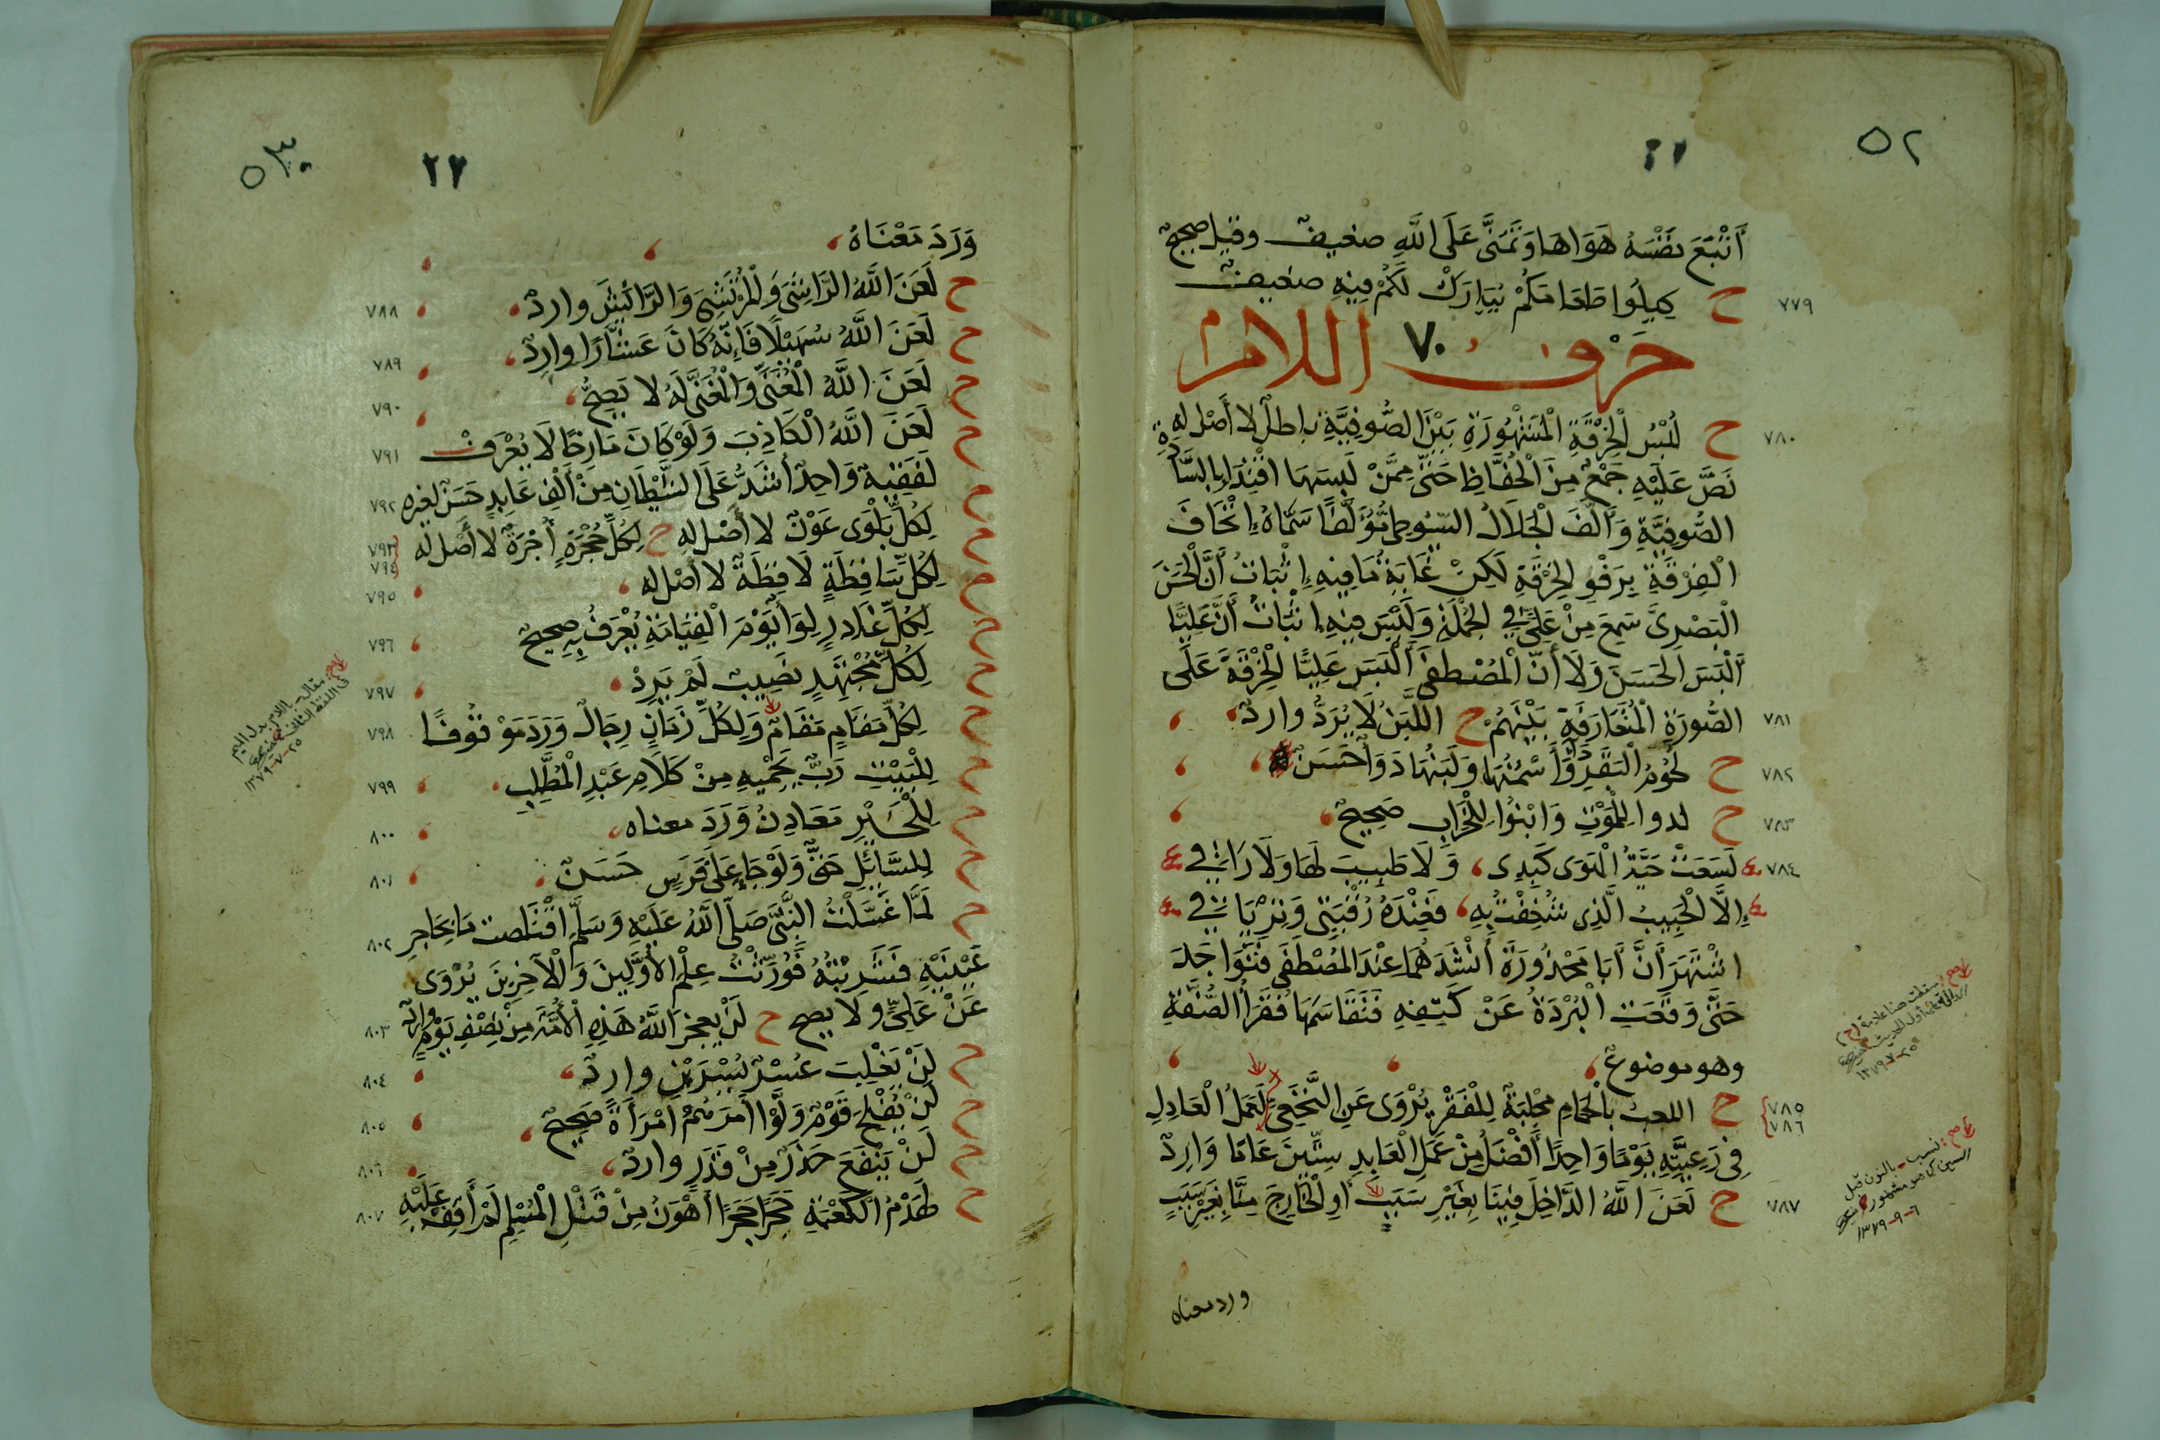 ٥٢
٢١
أَتْبَعَ نَفْسَهُ هَوَاهَا وَتَمَنَّى عَلَى اللَّهِ ضعيف وقيل صحيح
٧٧٩ ح كِيلُوا طَعَامَكُمْ يُبَارَكْ لَكُمْ فِيهِ ضعيف
حرف اللام ٧٠
٧٨٠ ح لُبْسُ الْخِرْقَةِ الْمَشْهُورَةِ بَيْنَ الصُّوفِيَّةِ باطل لا أَصْلَ له
نَصَّ عَلَيْهِ جَمْعٌ مِنَ الْحُفَّاظِ حَتَّى مِمَّنْ لَبِسَهَا اقْتِدَاءً بِالسَّادَةِ
الصُّوفِيَّةِ وَأَلَّفَ الْجَلَالُ السّيُوطِى مُؤَلَّفًا سَمَّاهُ إِتْحَافَ
الْفِرْقَةِ بِرَفْوِ الْخِرْقَةِ لَكِنْ غَايَةُ مَا فِيهِ إِثْبَاتُ أَنَّ الْحَسَنَ
الْبَصْرِىَّ سَمِعَ مِنْ عَلِيٍّ فِي الْجُمْلَةِ وَلَيْسَ فِيهِ إِثْبَاتُ أَنَّ عَلِيًّا
أَلْبَسَ الْحَسَنَ وَلَا أَنَّ الْمُصْطَفَى أَلْبَسَ عَلِيًّا الْخِرْقَةَ عَلَى
الصُّورَةِ الْمُتَعَارَفَةِ بَيْنَهُمْ ح اللَّبَنُ لَا يُرَدُّ وارد ٧٨١
٧٨٢ ح لُحُومُ الْبَقَرِ دَاءٌ وَسَمْنُهَا وَلَبَنُهَا دَوَاءٌ حَسَنٌ
٧٨٣ ح لدوا لِلْمَوْتِ وَابْنُوا لِلْخَرَابِ صَحِيحٌ
٧٨٤ لَسَعَتْ حَيَّةُ الْهَوَى كَبِدِى وَلَا طَبِيبَ لَهَا وَلَا رَاقِي
إِلَّا الْحَبِيبُ الَّذِى شُغِفْتُ بِهِ فَعِنْدَهُ رُقْيَتِى وَتِرْيَاقِي
اشْتَهَرَ أَنَّ أَبَا مَحْذُورَةَ أَنْشَدَهُمَا عِنْدَ الْمُصْطَفَى فَتَوَاجَدَ
حَتَّى وَقَعَتِ الْبُرْدَةُ عَنْ كَتِفِهِ فَتَقَاسَمَهَا فُقَرَاُ الصُّفَّةِ
وهو موضوع
٧٨٥ ٧٨٦ ح اللعب بالْحَمَامِ مَجْلَبَةٌ لِلْفَقْرِ يُرْوَى عَنِ النَّخَعِي لَعَمَلُ الْعَادِلِ
فِى رَعِيَّتِهِ يَوْمًا وَاحِدًا أَفْضَلُ مِنْ عَمَلِ الْعَابِدِ سِتِّينَ عَامًا وَارِدٌ
٧٨٧ ح لَعَنَ اللَّهُ الدَّاخِلَ فِينَا بِغَيْرِ سَبَبٍ أو الْخَارِجَ مِنَّا بِغَيْرِ سَبَبٍ
ورد معناه
٥٣
٢٢
وَرَدَ مَعْنَاهُ
ح لَعَنَ اللَّهُ الرَّاشِىَ وَالْمُرْتَشِىَ وَالرَّائِشَ وارد ٧٨٨
ح لَعَنَ اللَّهُ سُهَيْلًا فَإِنَّهُ كَانَ عَشَّارًا وارد ٧٨٩
ح لَعَنَ اللَّهُ الْمُغَنِّىَ وَالْمُغَنَّى لَهُ لا يَصِحُّ ٧٩٠
ح لَعَنَ اللَّهُ الْكَاذِبَ وَلَوْ كَانَ مَازِحًا لَا يُعْرَفْ ٧٩١
ح لَفَقِيهٌ وَاحِدٌ أَشَدُّ عَلَى الشَّيْطَانِ مِنْ أَلْفِ عَابِدٍ حَسَنٌ لغيره ٧٩٢
ح لِكُلِّ بَلْوَى عَوْنٌ لا أَصْلَ له ح لِكُلِّ حُجْرَةٍ أُجْرَةٌ لا أَصْلَ له ٧٩٣ ٧٩٤
ح لِكُلِّ سَاقِطَةٍ لَاقِطَةٌ لا أَصْلَ له ٧٩٥
ح لِكُلِّ غَادِرٍ لِوَاءٌ يَوْمَ الْقِيَامَةِ يُعْرَفُ بِهِ صحيح ٧٩٦
ح لِكُلِّ مُجْتَهِدٍ نَصِيبٌ لَمْ يَرِدْ ٧٩٧
ح لِكُلِّ مَقَامٍ مَقَامٌ وَلِكُلِّ زَمَانٍ رِجَالٌ وَرَدَ مَوْقُوفًا ٧٩٨
ح لِلْبَيْتِ رَبٌّ يَحْمِيهِ مِنْ كَلَامِ عَبْدِ الْمُطَّلِبِ ٧٩٩
ح لِلْخَيْرِ مَعَادِنُ وَرَدَ معناه ٨٠٠
ح لِلسَّائِلِ حَقٌّ وَلَوْ جَاءَ عَلَى فَرَسٍ حَسَنٌ ٨٠١
ح لَمَّا غَسَّلْتُ النَّبِيَّ صَلَّى اللَّهُ عَلَيْهِ وَسَلَّمَ اقْتَلَصت مَا مَحَاجِرِ ٨٠٢
عَيْنَيْهِ فَشَرِبْتُهُ فَوُرِّثْتُ عِلْمَ الْأَوَّلِينَ وَالْآخِرِينَ يُرْوَى
عَنْ عَلِيٍّ وَلَا يصح ح لَنْ يعجز اللَّهُ هَذِهِ الْأُمَّةَ مِنْ نِصْفِ يَوْمٍ وارد ٨٠٣
ح لَنْ يَغْلِبَ عُسْرٌ يُسْرَيْنِ وارد ٨٠٤
ح لَنْ يُفْلِحَ قَوْمٌ وَلَّوْا أَمْرَهُمْ امْرَأَةً صَحِيحٌ ٨٠٥
ح لَنْ يَنْفَعَ حَذَرٌ مِنْ قَدَرٍ وارد ٨٠٦
ح لَهَدْمُ الْكَعْبَةِ حَجَرًا حَجَرًا أَهْوَنُ مِنْ قَتْلِ الْمُسْلِمِ لَمْ أَقِفْ عَلَيْهِ ٨٠٧